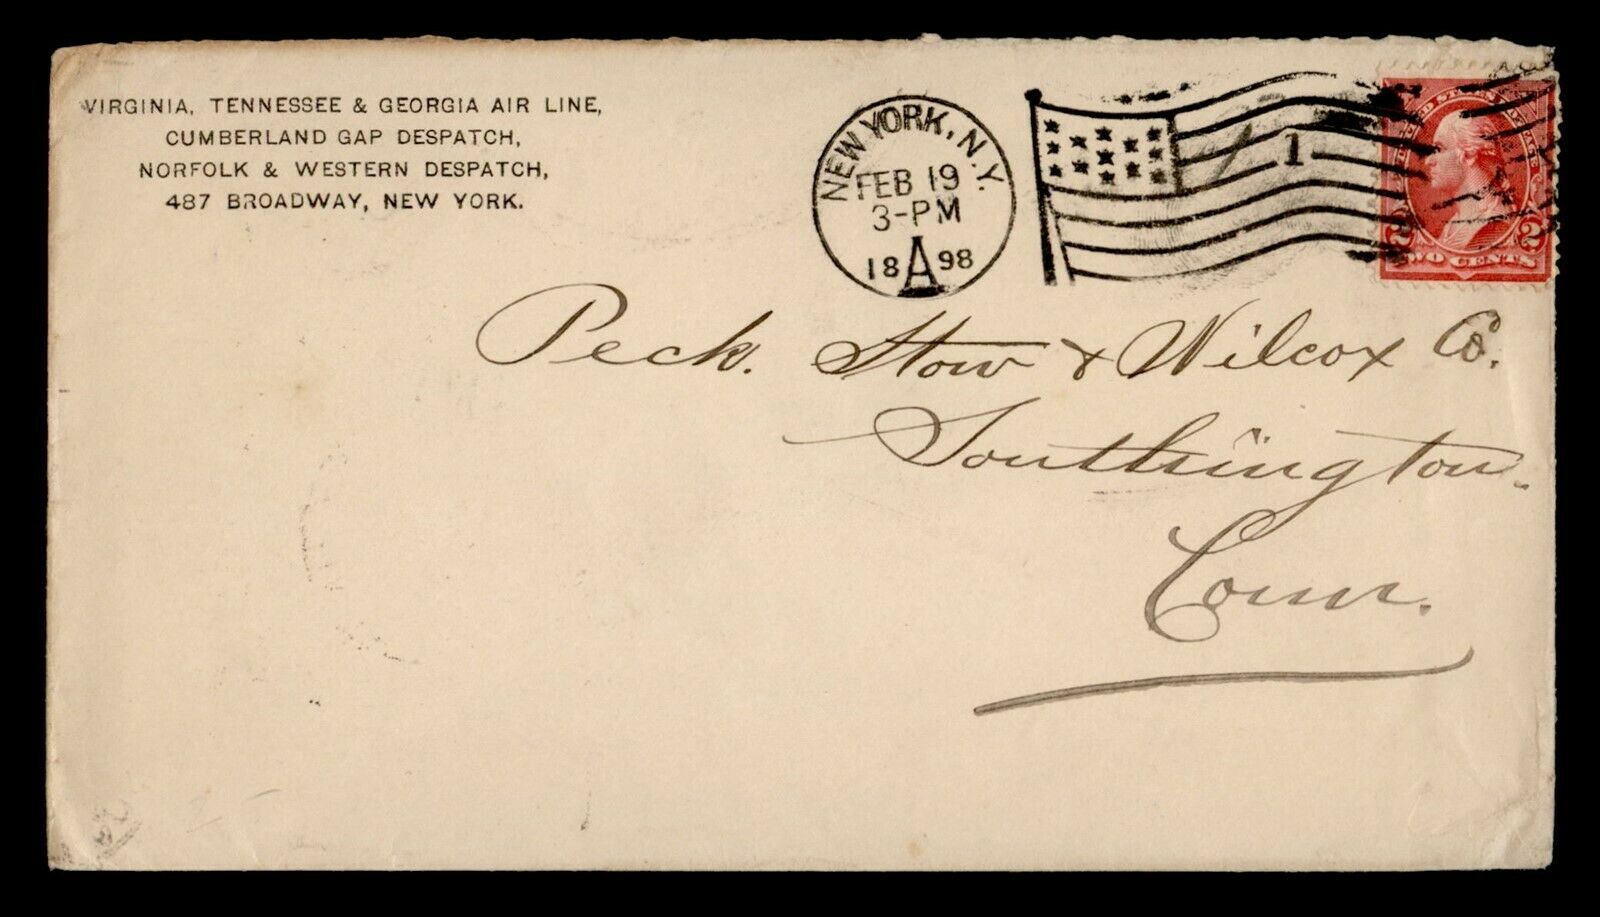 VIRGINIA, TENNESSEE & GEORGIA AIR LINE,
CUMBERLAND GAP DESPATCH,
NORFOLK & WESTERN DESPATCH,
487 BROADWAY, NEW YORK.
NEW YORK, N.Y.
FEB 19
3-PM
18 A 98
1
UNITED STATES POSTAGE
2 2
TWO CENTS
Peck. Stow & Wilcox Co.
Southington.
Conn.